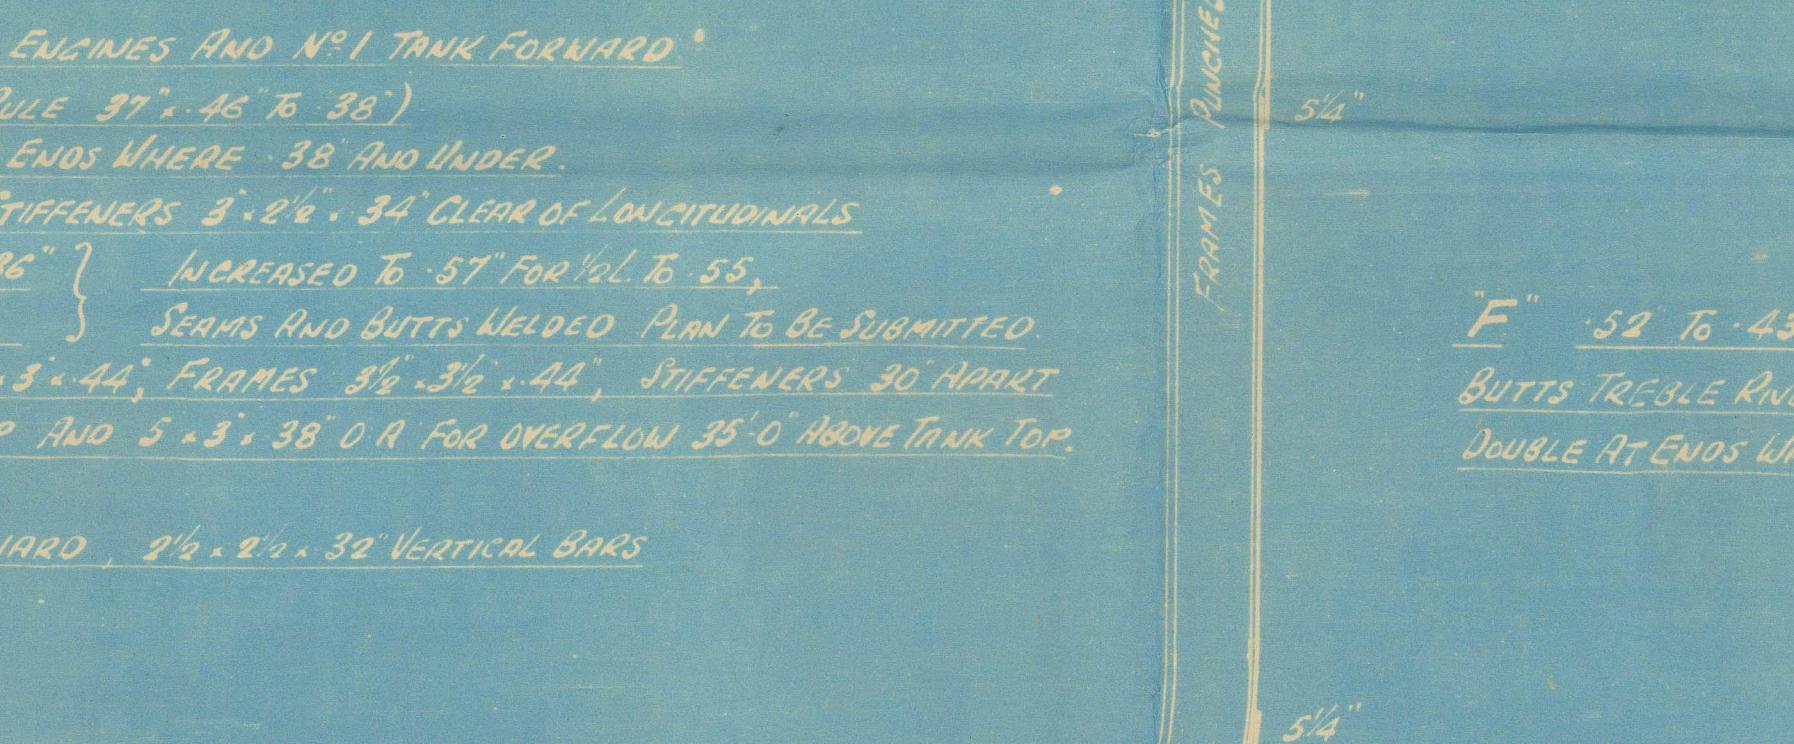 ENGINES AND Nº 1 TANK FORWARD
RULE 37" x .46" TO .38")
ENDS WHERE .38" AND UNDER.
STIFFENERS 3" x 2½" x .34" CLEAR OF LONGITUDINALS
36" } INCREASED TO .57" FOR ½L. TO .55,
SEAMS AND BUTTS WELDED PLAN TO BE SUBMITTED.
x 3" x .44", FRAMES 3½" x 3½" x .44", STIFFENERS 30" APART
AND 5 x 3" x .38" O A FOR OVERFLOW 35'-0" ABOVE TANK TOP.
2½ x 2½ x .32" VERTICAL BARS
FRAMES PUNCHED
5¼"
5¼"
"F" .52" TO .43
BUTTS TREBLE RIV
DOUBLE AT ENDS WH